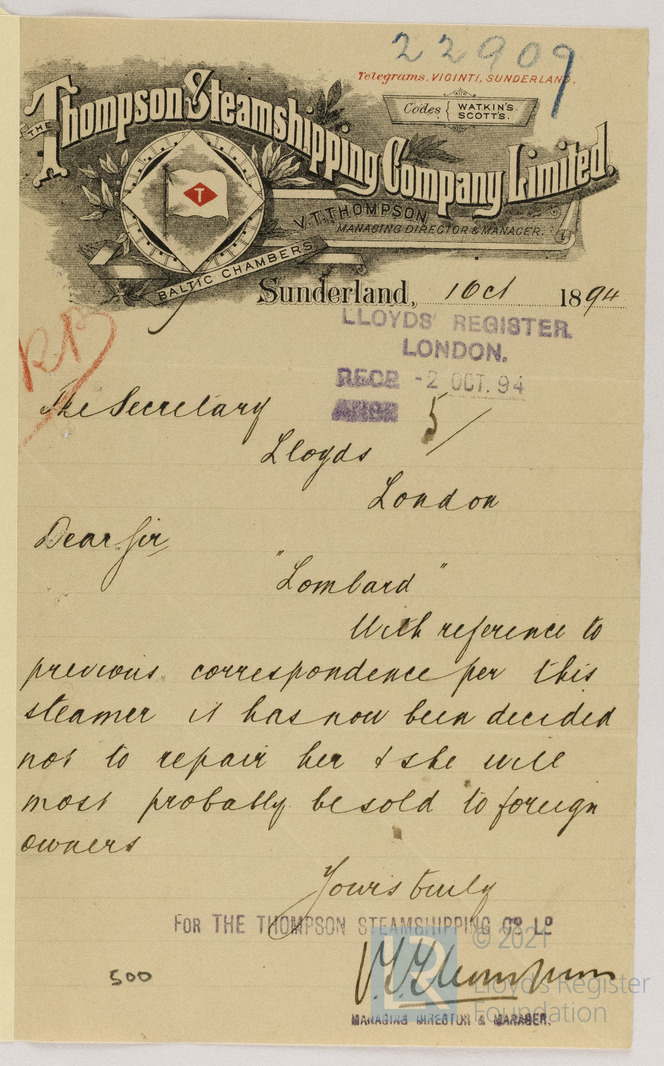 22909
Telegrams, VIGINTI, SUNDERLAND.
Codes { WATKIN'S.
SCOTTS.
THE Thompson Steamshipping Company Limited.
T
V.T. THOMPSON,
MANAGING DIRECTOR & MANAGER.
BALTIC CHAMBERS
Sunderland, 1 Oct 1894
LLOYDS' REGISTER.
LONDON.
RECD -2 OCT. 94
5/
The Secretary
Lloyds
London
Dear Sir
"Lombard"
With reference to
previous correspondence per this
steamer it has now been decided
not to repair her & she will
most probably be sold to foreign
owners
Yours truly
FOR THE THOMPSON STEAMSHIPPING CO. LD
V.T. Thompson
MANAGING DIRECTOR & MANAGER.
500
© 2021
LR
Lloyd's Register
Foundation